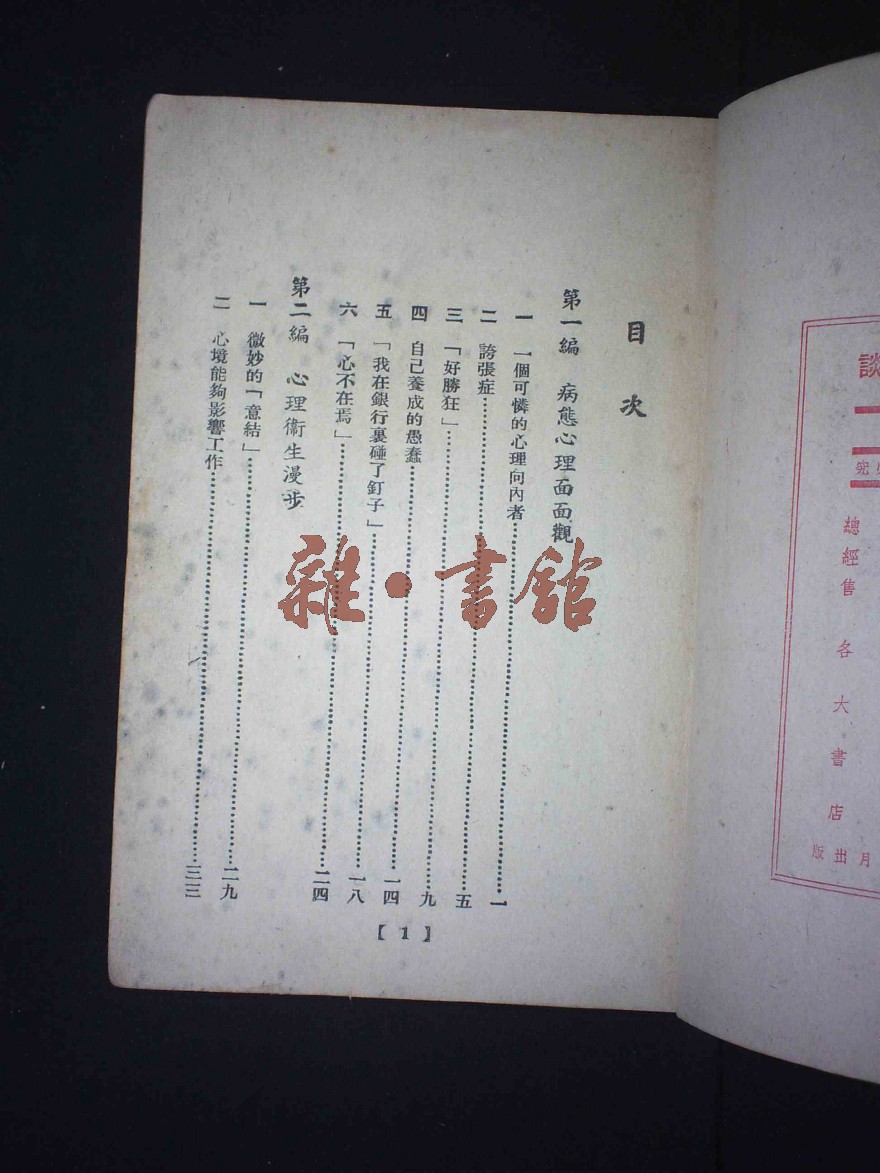 談
總經售 各大書店
月出版
目次
第一編 病態心理面面觀
一 一個可憐的心理向內者……一
二 誇張症……五
三 「好勝狂」……九
四 自己養成的愚蠢……一四
五 「我在銀行裏碰了釘子」……一八
六 「心不在焉」……二四
第二編 心理衞生漫步
一 微妙的「意結」……二九
二 心境能夠影響工作……三三
【1】
雜·書館